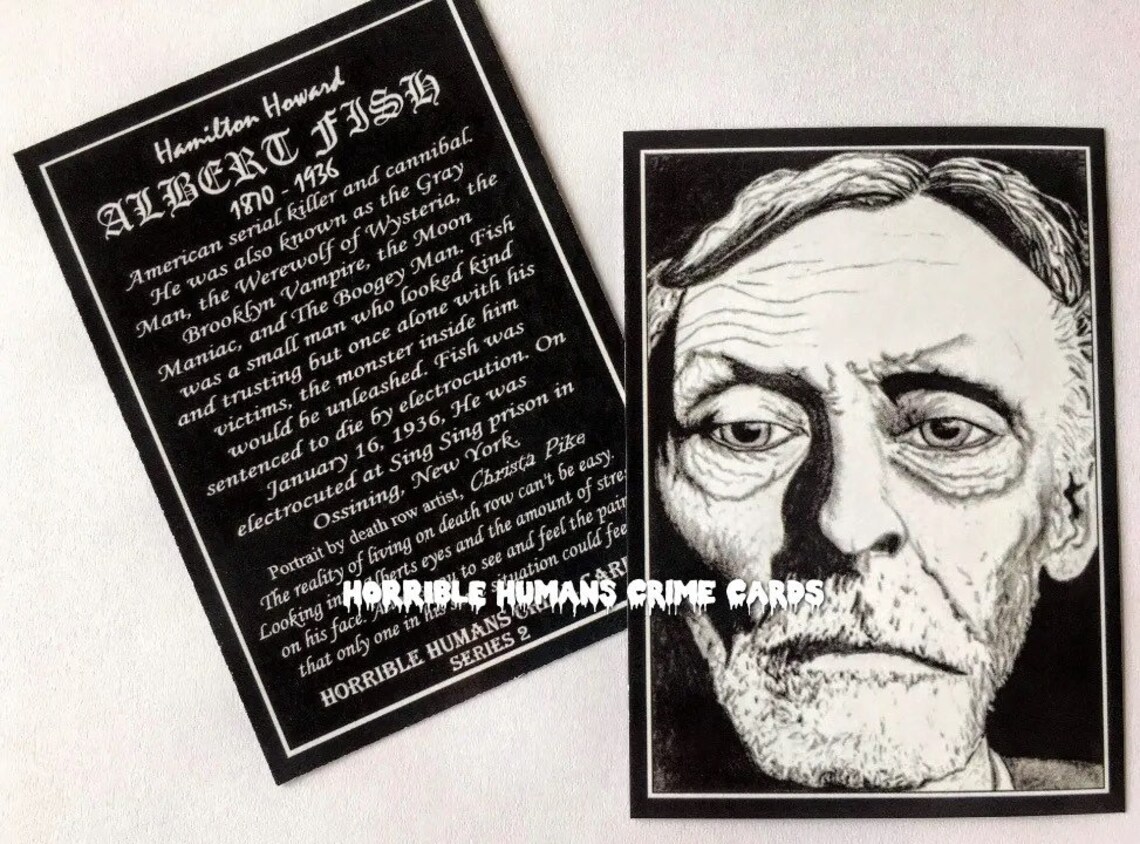 Hamilton Howard
ALBERT FISH
1870 - 1936
American serial killer and cannibal.
He was also known as the Gray
Man, the Werewolf of Wysteria, the
Brooklyn Vampire, the Moon
Maniac, and The Boogey Man. Fish
was a small man who looked kind
and trusting but once alone with his
victims, the monster inside him
would be unleashed. Fish was
sentenced to die by electrocution. On
January 16, 1936, He was
electrocuted at Sing Sing prison in
Ossining, New York.
Portrait by death row artist, Christa Pike
The reality of living on death row can't be easy.
Looking in Alberts eyes and the amount of
on his face. to see and feel the
that only one in his situation could
HORRIBLE HUMANS
SERIES 2
HORRIBLE HUMANS CRIME CARDS